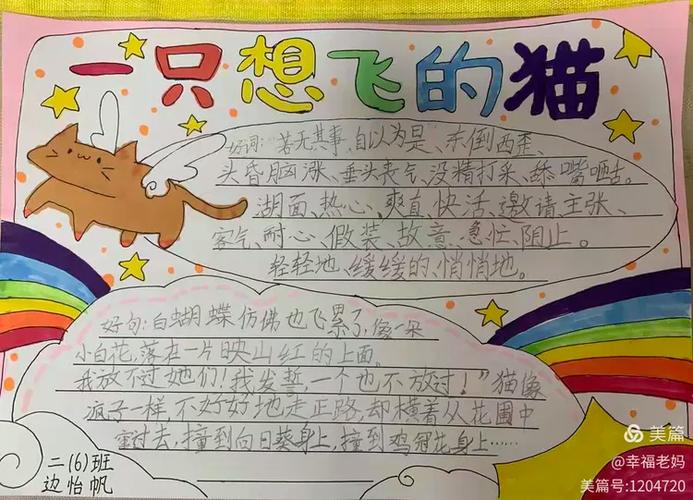 一只想飞的猫
好词：若无其事、自以为是、东倒西歪、
头昏脑涨、垂头丧气、没精打采、舔嘴咂舌。
湖面、热心、爽直、快活、邀请、主张、
客气、耐心、假装、故意、急忙、阻止。
轻轻地、缓缓的、悄悄地。
好句：白蝴蝶仿佛也飞累了，像一朵
小白花，落在一片映山红的上面。
我放不过她们！我发誓，一个也不放过！”猫像
疯子一样，不好好地走正路，却横着从花圃中
窜过去，撞到向日葵身上，撞到鸡冠花身上……
二（6）班
边怡帆
美篇
@幸福老妈
美篇号:1204720